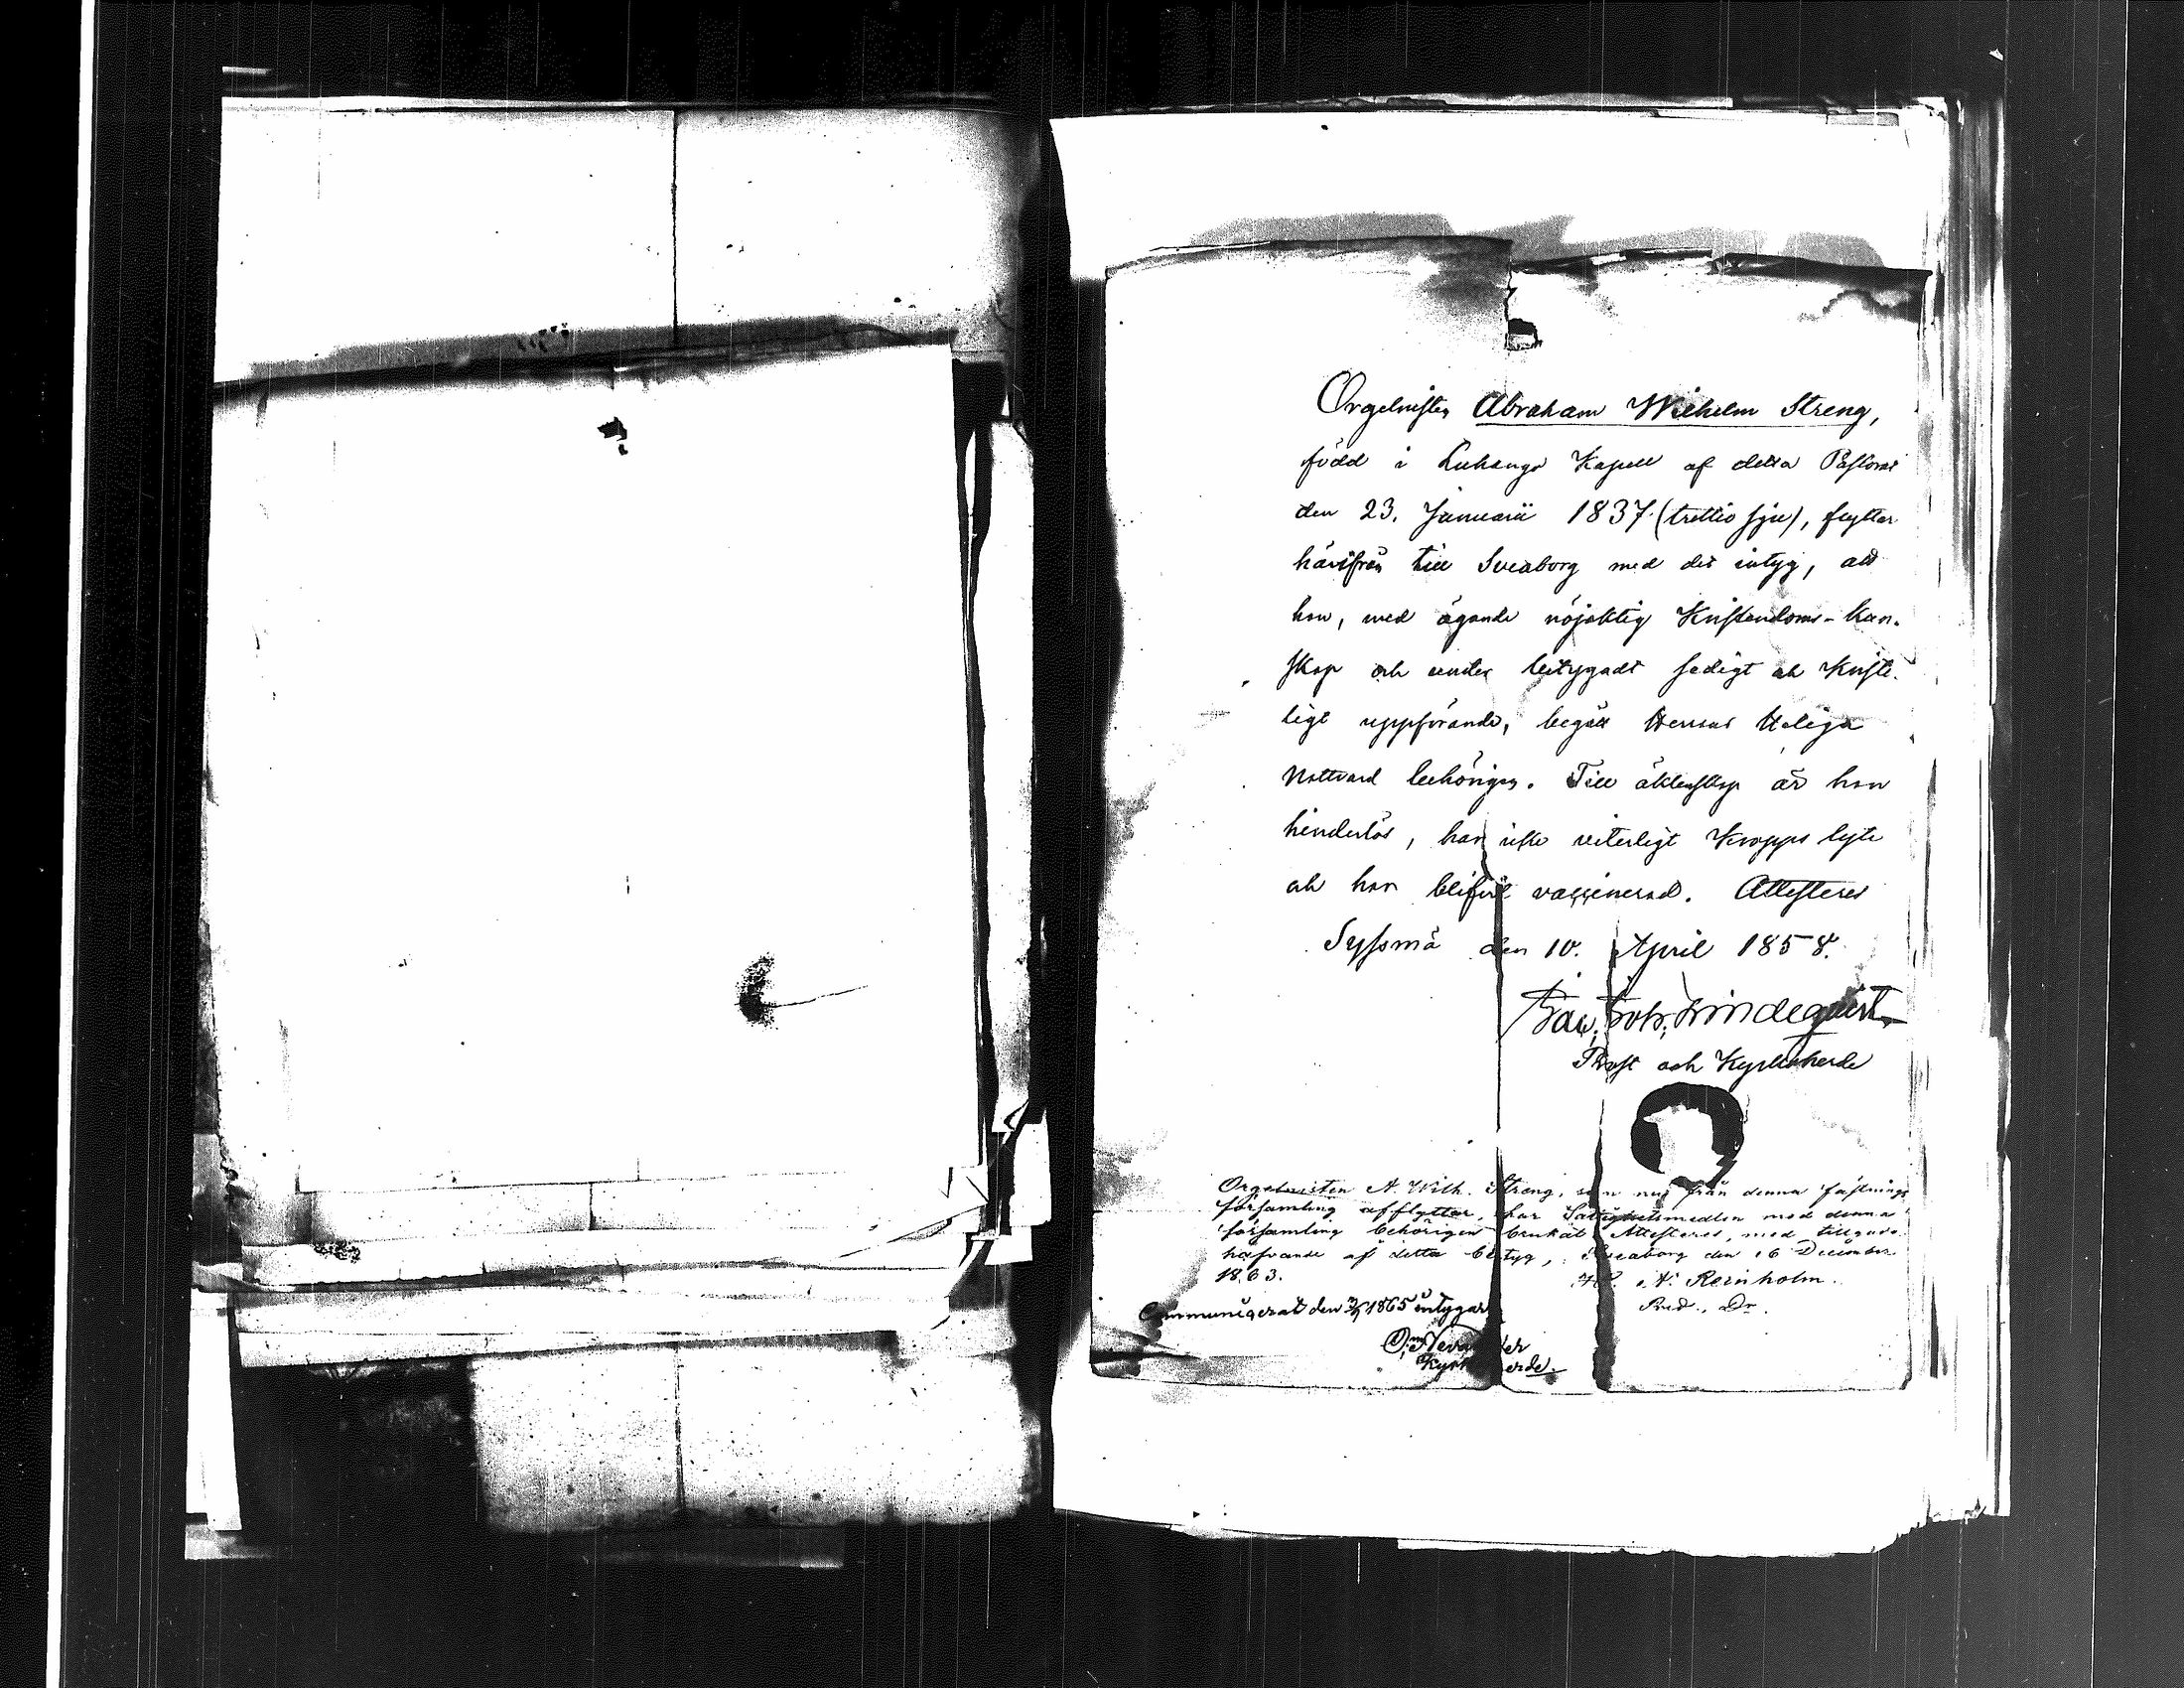 Orgelnisten Abraham Wilhelm Streng,
född i Luhango Kapell af detta Pastorat
den 23. Januarii 1837 (trettio sju), flyttar
härifrån till Sveaborg med det intyg, att
han, med ägande nöjaktig Kristendoms-kun-
skap och under betygadt sedigt och Kriste-
ligt uppförande, begått Herrans Heliga
Nattvard behörigen. Till äktenskap är han
hinderlös, har icke veterligt Kropps lyte
och har blifvit vaccinerad. Attesteres
Syssmä den 10. April 1858.
Joh. Lindequist
Prost och Kyrkoherde
Orgelnisten A. Wilh. Streng, som nu från denna fästnings
församling afflyttar, har Salighetsmedlen med denna
församling behörigen brukat Attesteres, med tillgodo-
hafvande af detta betyg, Sveaborg den 16 December
1863. H. A. Reinholm.
Pred., Dr.
Communicerat den 1865 intygar
Kyrkoherde.